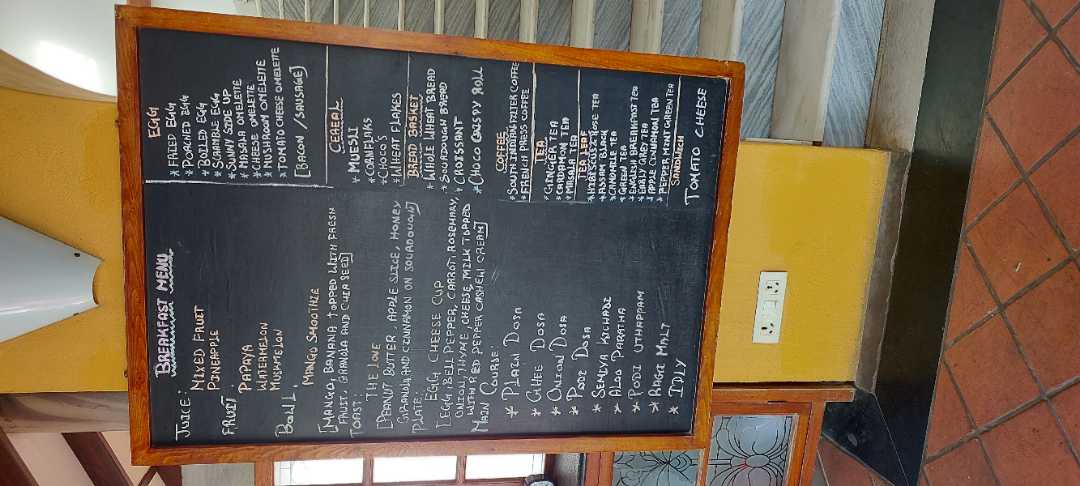 BREAKFAST MENU
JUICE:
MIXED FRUIT
PINEAPPLE
FRUIT:
PAPAYA
WATERMELON
MUSKMELON
BOWL:
MANGO SMOOTHIE
[MANGO, BANANA TOPPED WITH FRESH
FRUIT, GRANOLA AND CHIA SEED]
TOAST:
THE JOVE
[PEANUT BUTTER, APPLE SLICE, HONEY
GRANOLA AND CINNAMON ON SOURDOUGH]
PLATE:
EGG CHEESE CUP
[EGG, BELL PEPPER, CARROT, ROSEMARY,
ONION, THYME, CHEESE, MILK TOPPED
WITH RED PEPPER CASHEW CREAM]
MAIN COURSE:
* PLAIN DOSA
* GHEE DOSA
* ONION DOSA
* PODI DOSA
* SEMIYA KICHADI
* ALOO PARATHA
* PODI UTHAPPAM
* RAGI MALT
* IDLY
EGG
* FRIED EGG
* POACHED EGG
* BOILED EGG
* SCRAMBLE EGG
* SUNNY SIDE UP
* MASALA OMELETTE
* CHEESE OMELETTE
* MUSHROOM OMELETTE
* TOMATO CHEESE OMELETTE
[BACON / SAUSAGE]
CEREAL
* MUESLI
* CORNFLAKS
* CHOCO'S
* WHEAT FLAKES
BREAD BASKET
* WHOLE WHEAT BREAD
* SOURDOUGH BREAD
* CROISSANT
* CHOCO CRISPY ROLL
COFFEE
* SOUTH INDIAN FILTER COFFEE
* FRENCH PRESS COFFEE
TEA
* GINGER TEA
* CARDAMOM TEA
* MASALA TEA
TEA LEAF
* ROSE TEA
* ASSAM BLACK
* TEA
* GREEN TEA
* ENGLISH BREAKFAST TEA
* EARL GREY TEA
* APPLE CINNAMON TEA
* PEPPER MINT GREEN TEA
SANDWICH
TOMATO CHEESE